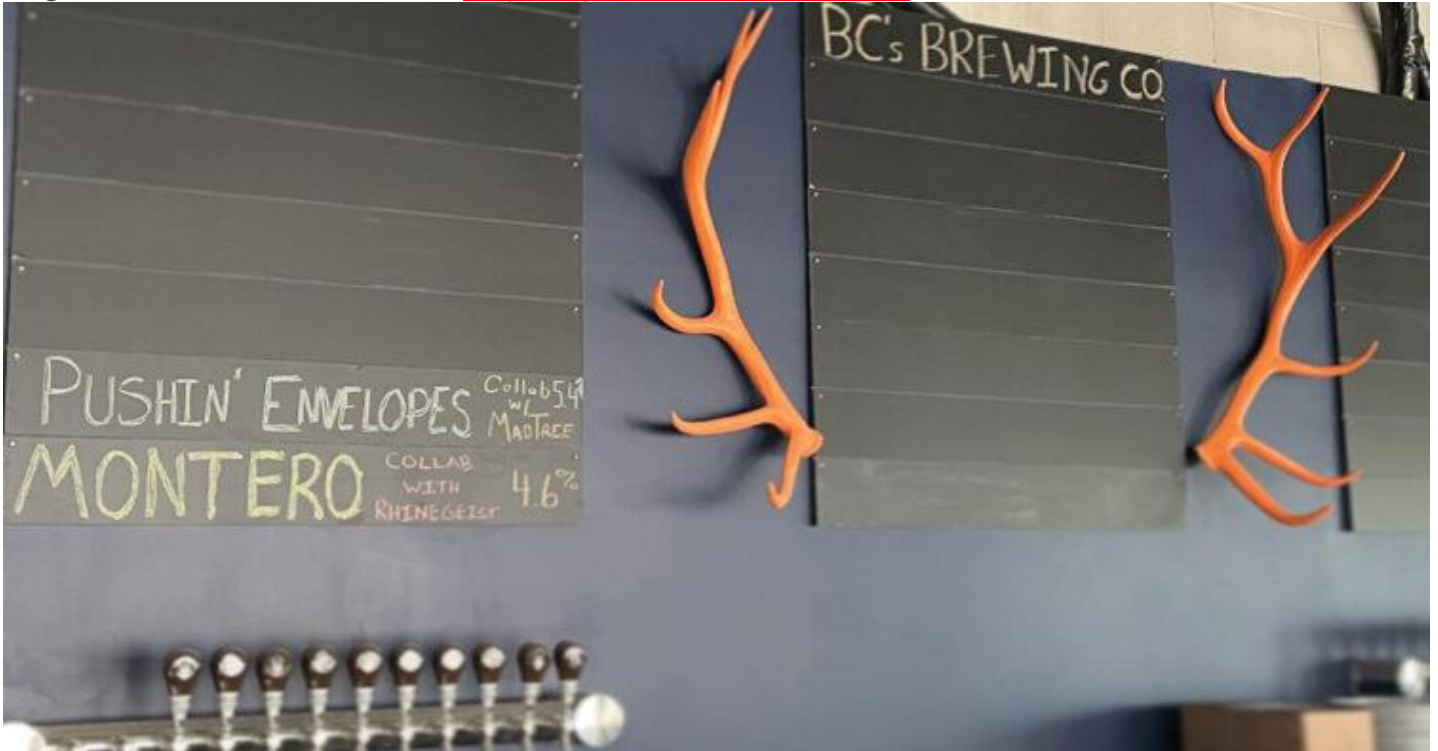 BC's BREWING CO.
PUSHIN' ENVELOPES Collab 5.4%
w/
MADTREE
MONTERO COLLAB
WITH 4.6%
RHINEGEIST